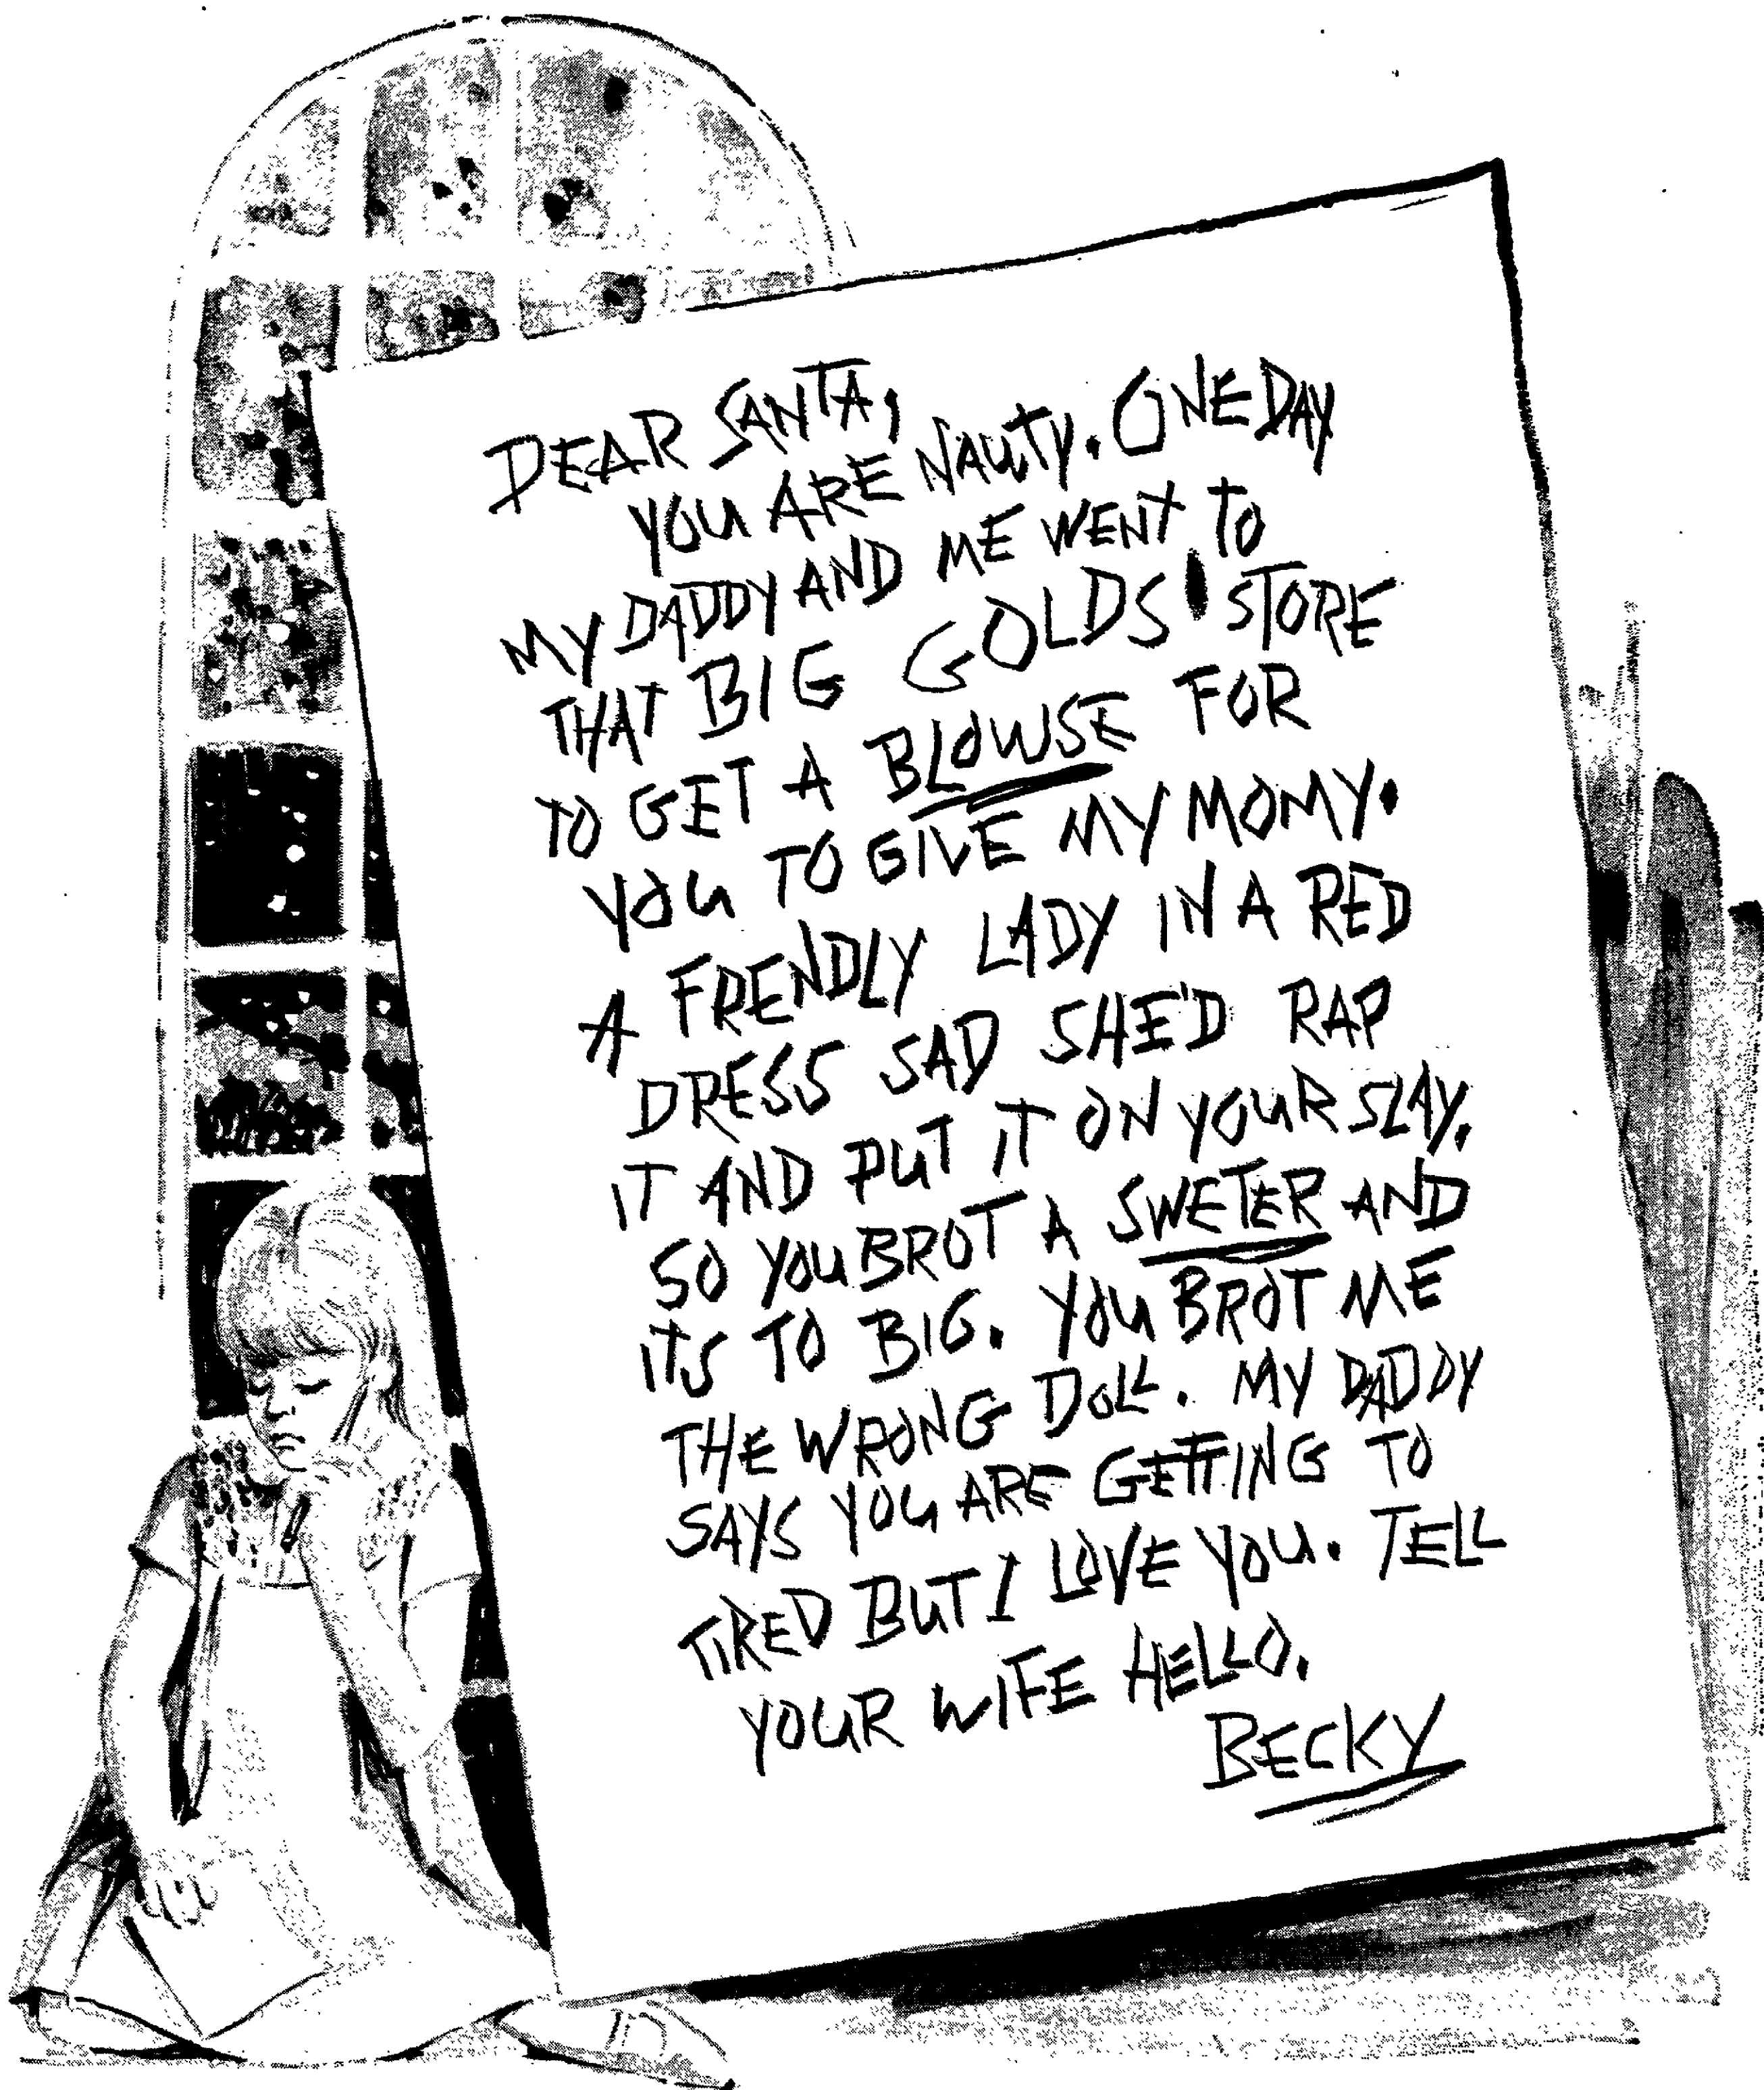 DEAR SANTA,
YOU ARE NAUTY. ONE DAY
MY DADDY AND ME WENT TO
THAT BIG GOLDS' STORE
TO GET A BLOWSE FOR
YOU TO GIVE MY MOMY.
A FRENDLY LADY IN A RED
DRESS SAD SHE'D RAP
IT AND PUT IT ON YOUR SLAY.
SO YOU BROT A SWETER AND
ITS TO BIG. YOU BROT ME
THE WRONG DOLL. MY DADDY
SAYS YOU ARE GETTING TO
TIRED BUT I LOVE YOU. TELL
YOUR WIFE HELLO.
BECKY